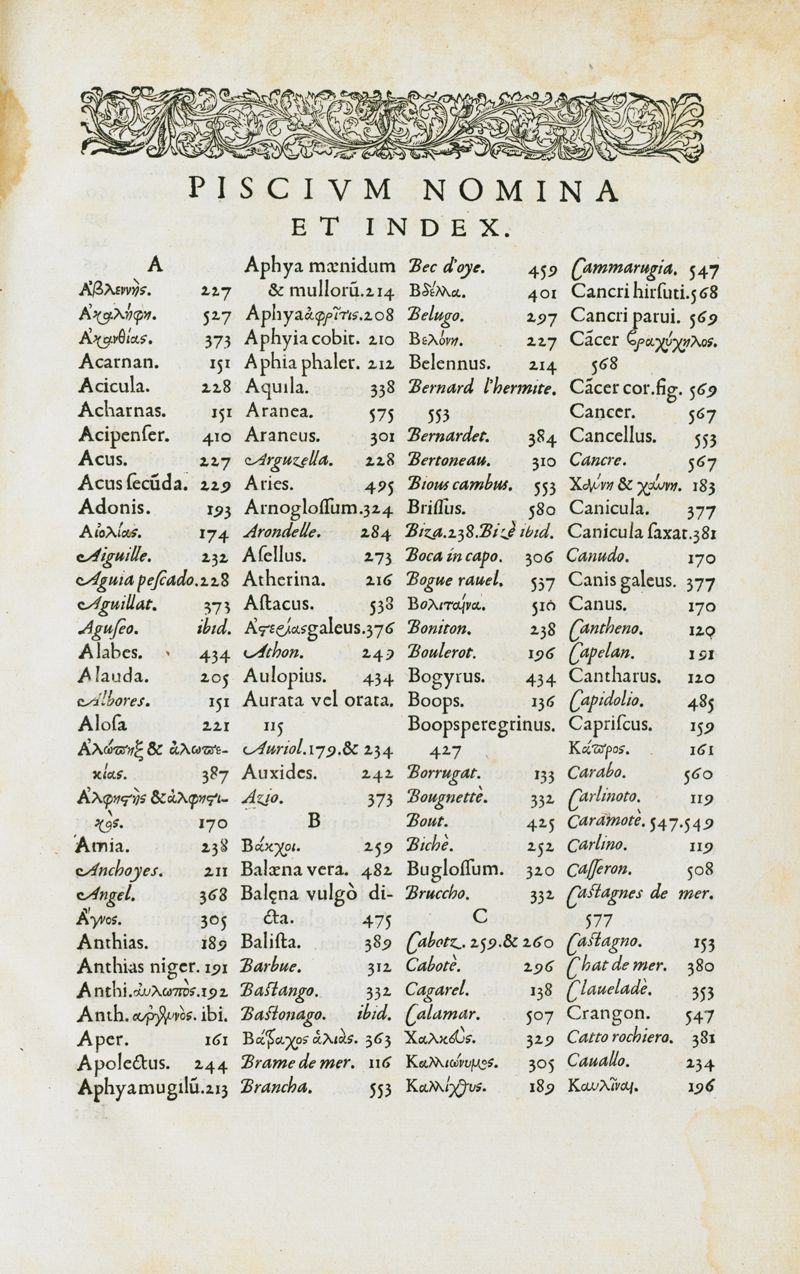 PISCIVM NOMINA
ET INDEX.
A
Ἀβλεννὴς. 227
Ἀκαλήφη. 527
Ἀκανθίας. 373
Acarnan. 151
Acicula. 228
Acharnas. 151
Acipenſer. 410
Acus. 227
Acus ſecūda. 229
Adonis. 193
Αἰολίας. 174
Aiguille. 232
Aguia peſcado. 228
Aguillat. 373
Aguſeo. ibid.
Alabes. 434
Alauda. 205
Albores. 151
Aloſa 221
Ἀλώπηξ & ἀλωπε-
κίας. 387
Ἀλφηστὴς & ἀλφηστι-
κὸς. 170
Amia. 238
Anchoyes. 211
Angel. 368
Ἄγνος. 305
Anthias. 189
Anthias niger. 191
Anthi. αὐλωπὸς. 192
Anth. ibi.
Aper. 161
Apolectus. 244
Aphya mugilū. 213
Aphya mænidum
& mullorū. 214
Aphya ἀφρῖτις. 208
Aphyia cobit. 210
Aphia phaler. 212
Aquila. 338
Aranea. 575
Araneus. 301
Arguzella. 228
Aries. 495
Arnogloſſum. 324
Arondelle. 284
Aſellus. 273
Atherina. 216
Aſtacus. 538
Ἀστερίας galeus. 376
Athon. 249
Aulopius. 434
Aurata vel orata.
115
Auriol. 179. & 234
Auxides. 242
Azio. 373
B
Βάκχοι. 259
Balæna vera. 482
Balęna vulgò di-
cta. 475
Baliſta. 389
Barbue. 312
Baſtango. 332
Baſtonago. ibid.
Βάτραχος ἁλιὰς. 363
Brame de mer. 116
Brancha. 553
Bec d'oye. 459
Βδέλλα. 401
Belugo. 297
Βελόνη. 227
Belennus. 214
Bernard l'hermite.
553
Bernardet. 384
Bertoneau. 310
Bious cambus. 553
Briſſus. 580
Biza. 238. Bizè ibid.
Boca in capo. 306
Bogue rauel. 537
Βολιταίνα. 510
Boniton. 238
Boulerot. 196
Bogyrus. 434
Boops. 136
Boops peregrinus.
427
Borrugat. 133
Bougnettè. 332
Bout. 425
Bichè. 252
Bugloſſum. 320
Bruccho. 332
C
Cabotz. 259. & 260
Cabotè. 296
Cagarel. 138
Calamar. 507
Χαλκεὺς. 329
Καλλιώνυμος. 305
Καλλίχθυς. 189
Cammarugia. 547
Cancri hirſuti. 568
Cancri parui. 569
Cācer βραχύχηλος.
568
Cācer cor. fig. 569
Cancer. 567
Cancellus. 553
Cancre. 567
Χάννη & χάνη. 183
Canicula. 377
Canicula ſaxat. 381
Canudo. 170
Canis galeus. 377
Canus. 170
Cantheno. 120
Capelan. 191
Cantharus. 120
Capidolio. 485
Capriſcus. 159
Κάπρος. 161
Carabo. 560
Carlinoto. 119
Caramotè. 547. 549
Carlino. 119
Caſſeron. 508
Caſtagnes de mer.
577
Caſtagno. 153
Chat de mer. 380
Claueladè. 353
Crangon. 547
Catto rochiero. 381
Cauallo. 234
Καυλῖναι. 196